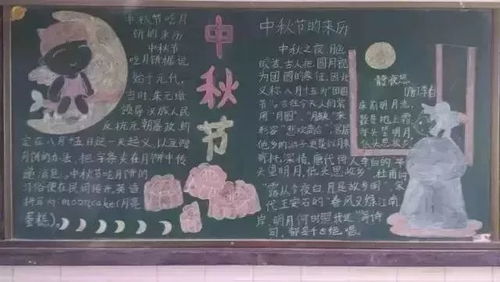 中秋节吃月
饼的来历
中秋节
吃月饼据说
始于元代，
当时，朱元璋
领导汉族人民
反抗元朝暴政约
定在八月十五日这一天起义，以互赠
月饼的办法，把字条夹在月饼中传
递消息。中秋节吃月饼的
习俗便在民间传开，英语
拼写为:mooncake(月亮
蛋糕)。
中秋节
中秋节的来历
中秋之夜，月色
皎洁，古人把圆月视
为团圆的象征，因此，
又称八月十五为“团圆
节”。古往今天，人们常
用“月圆”、“月缺”来
形容“悲欢离合”，客居
他乡的游子，更是以月来
寄托深情。唐代诗人李白的“举
头望明月，低头思故乡”，杜甫的
“露从今夜白，月是故乡明”，宋
代王安石的“春风又绿江南
岸，明月何时照我还”等诗
句，都是千古绝唱。
静夜思
李白
床前明月光，
疑是地上霜。
举头望明月，
低头思故乡。